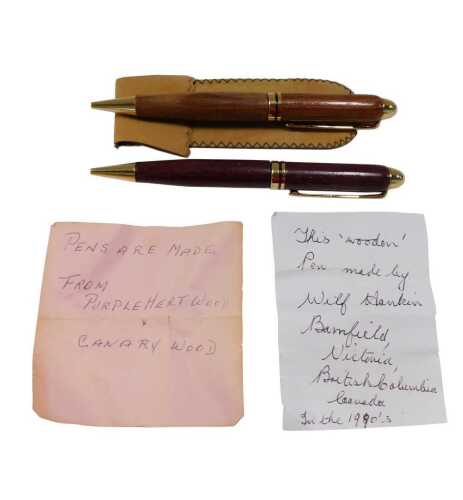 PENS ARE MADE
FROM
PURPLEHERT WOOD
&
CANARY WOOD
This 'wooden'
Pen made by
Wilf Hankin
Bamfield,
Victoria,
British Columbia
Canada
In the 1990's